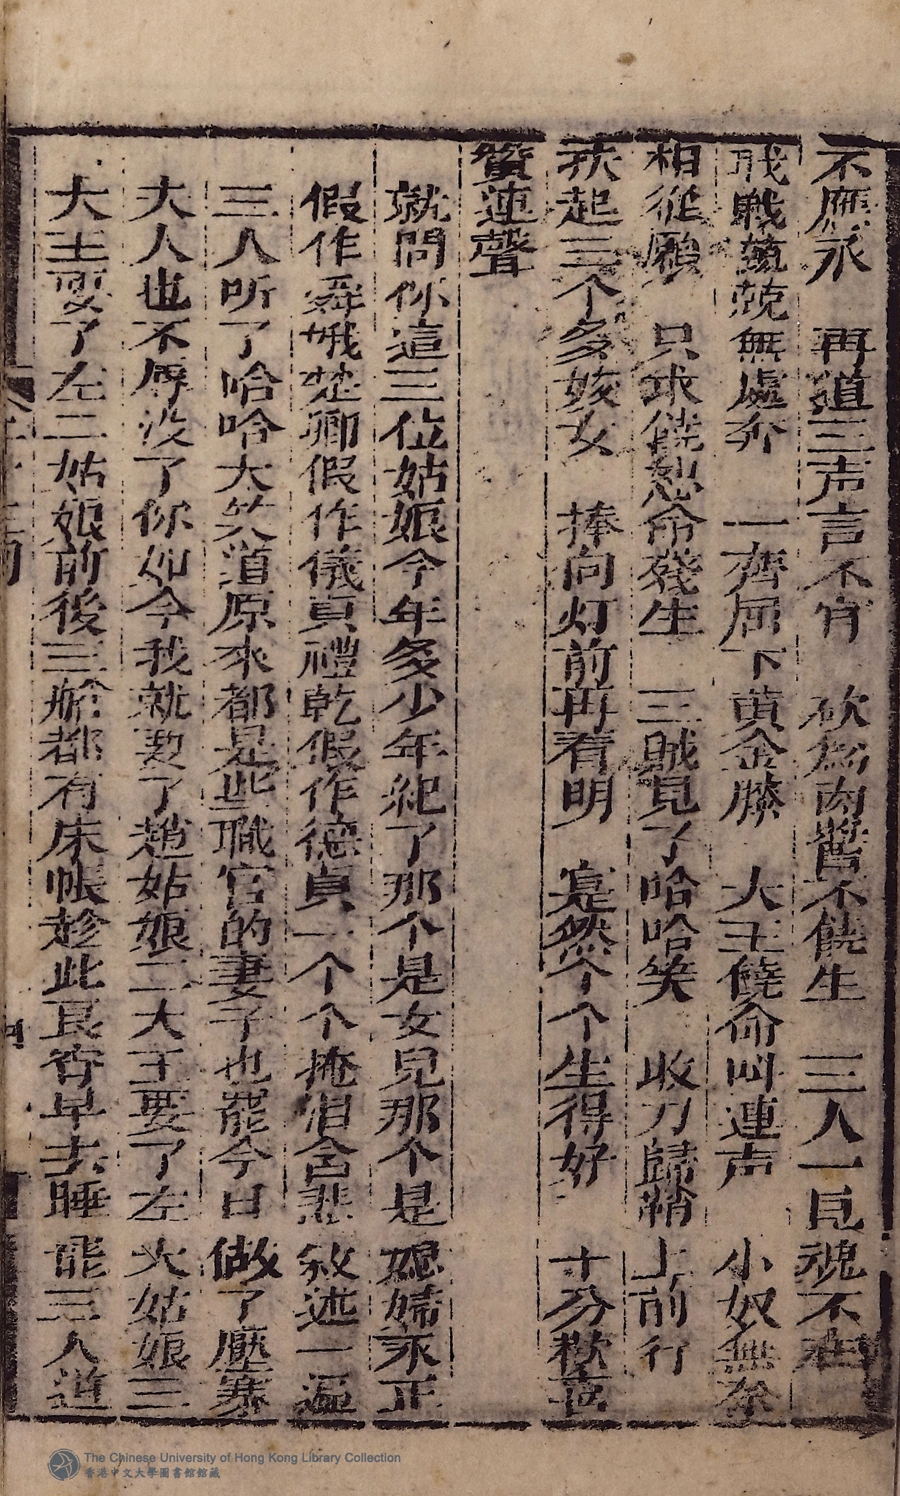 不應承 再道三声言不肯 砍為肉醬不饒生 三人一見魂不在
戰戰兢兢無處奔 一齊屈下黄金膝 大王饒命叫連声 小奴無奈
相從願 只求饒恕命殘生 三賊見了哈哈笑 收刀歸鞘上前行
扶起三个多姣女 捧向灯前再看明 寔然个个生得好 十分歡喜
賛連聲
就問你這三位姑娘今年多少年紀了那个是女兒那个是媳婦永正
假作舜娥楚卿假作儀貞禮乾假作德貞一个个掩泪含悲敘述一遍
三人听了哈哈大笑道原來都是些職官的妻子也罷今日做了壓寨
夫人也不辱没了你如今我就要了趙姑娘二大王要了左大姑娘三
大王要了左二姑娘前後三艙都有床帳趁此良宵早去睡罷三人道
The Chinese University of Hong Kong Library Collection
香港中文大學圖書館館藏